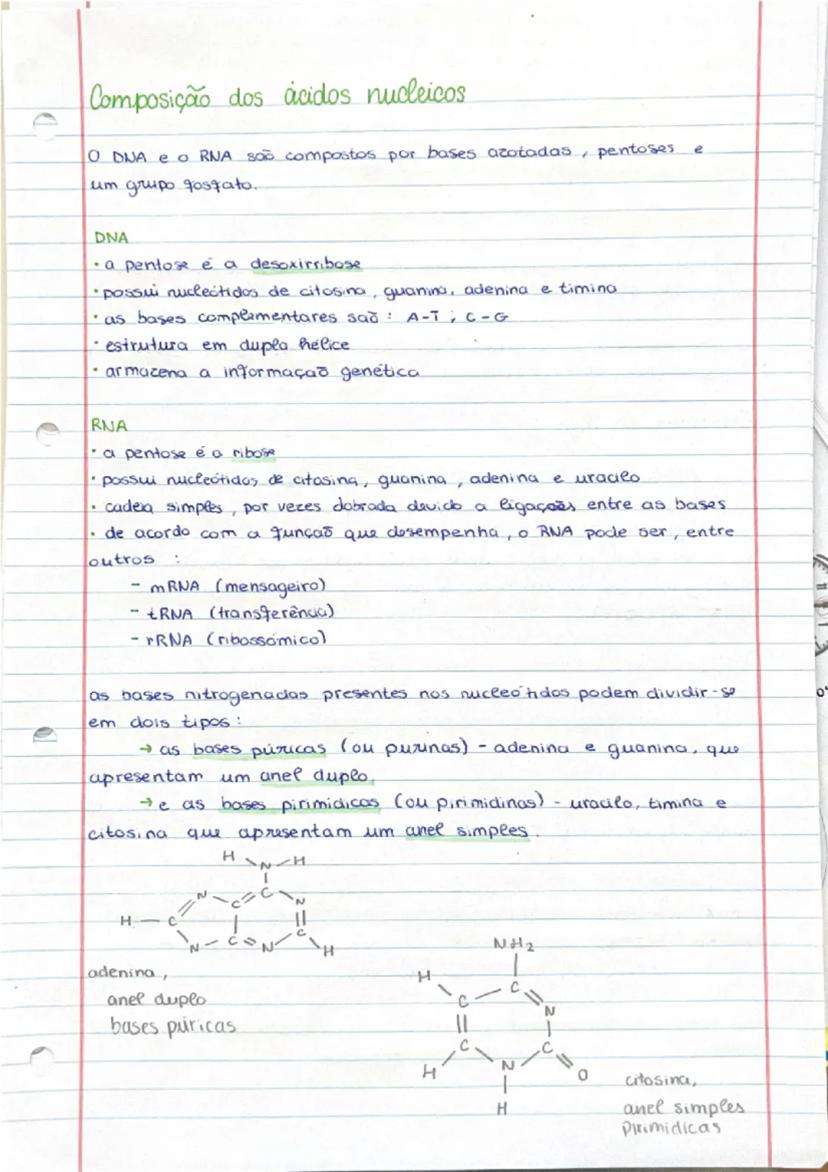 Composição dos ácidos nucleicos
O DNA e o RNA são compostos por bases azotadas, pentoses e
um grupo fosfato.
DNA
• a pentose é a desoxirribose
• possui nucleótidos de citosina, guanina, adenina e timina
• as bases complementares são: A-T; C-G
• estrutura em dupla hélice
• armazena a informação genética
RNA
• a pentose é a ribose
• possui nucleótidos de citosina, guanina, adenina e uracilo
• cadeia simples, por vezes dobrada devido a ligações entre as bases
• de acordo com a função que desempenha, o RNA pode ser, entre
outros :
- mRNA (mensageiro)
- tRNA (transferência)
- rRNA (ribossómico)
as bases nitrogenadas presentes nos nucleótidos podem dividir-se
em dois tipos:
→ as bases púricas (ou purinas) - adenina e guanina, que
apresentam um anel duplo,
→ e as bases pirimídicas (ou pirimidinas) - uracilo, timina e
citosina que apresentam um anel simples.
H N H
N C C N
H C
N C N C H
adenina,
anel duplo
bases púricas
NH2
H C C N
C C
H N O
H
citosina,
anel simples
Pirimidicas